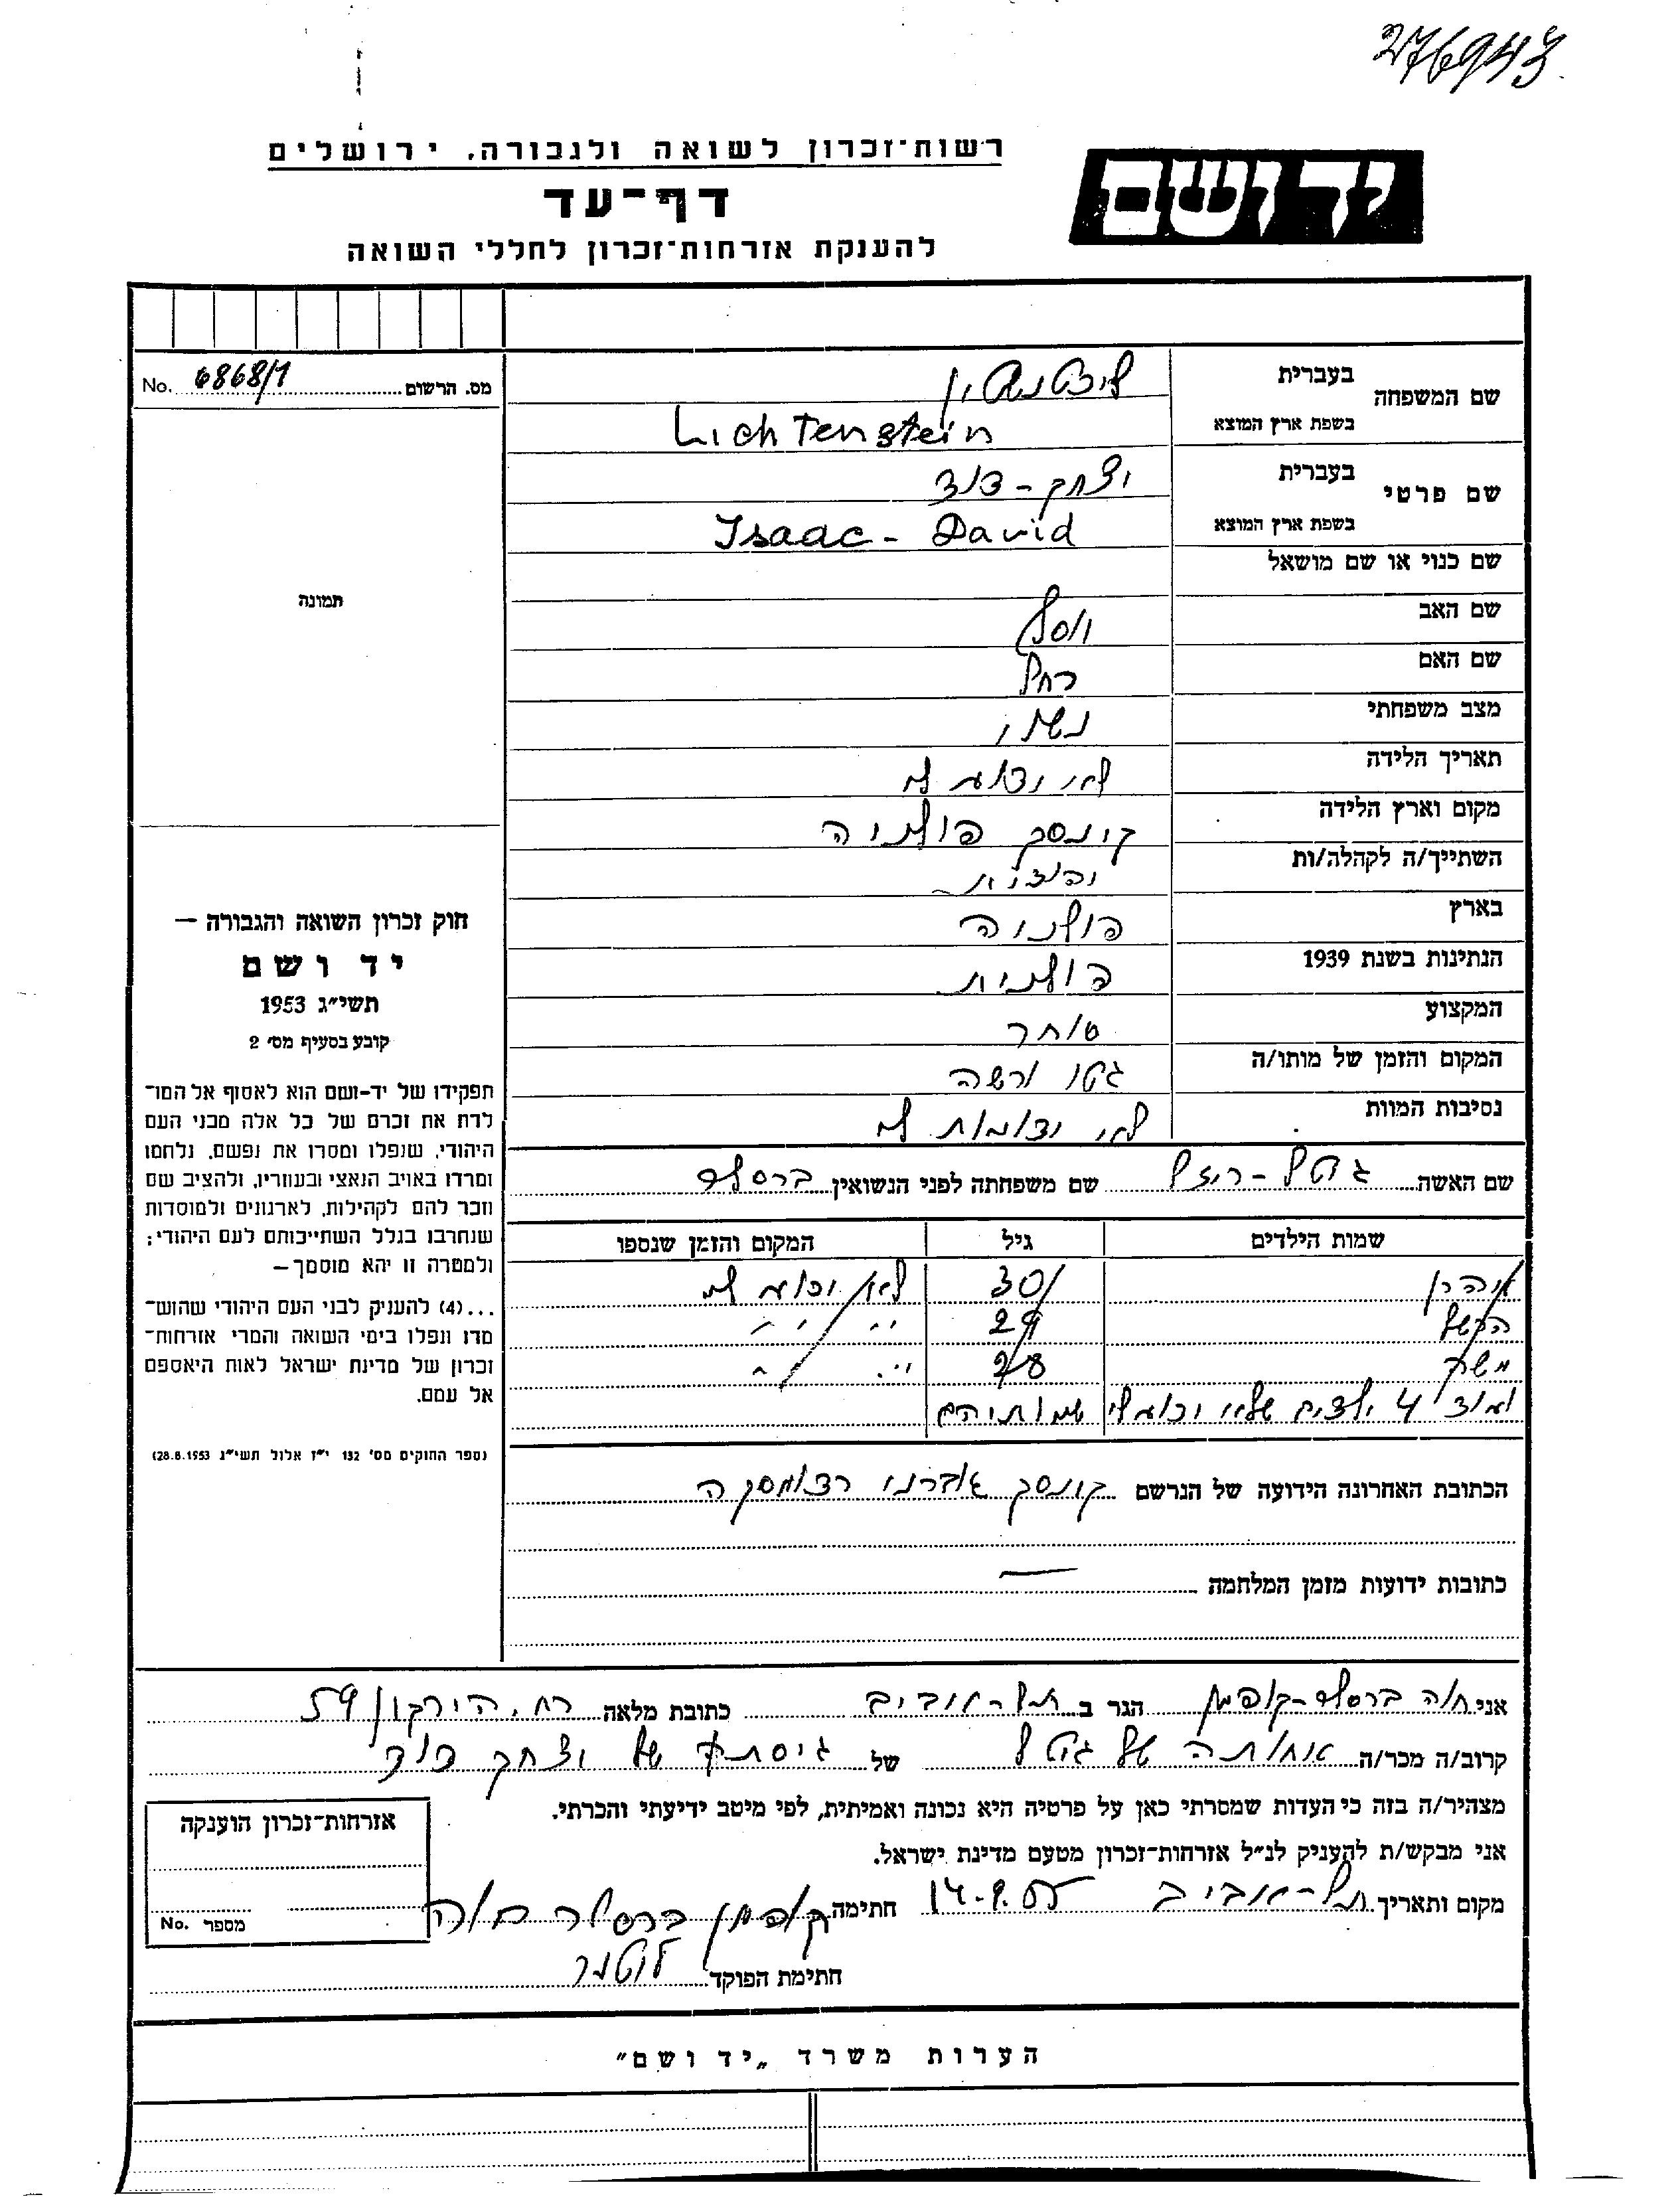 276943
רשות־זכרון לשואה ולגבורה, ירושלים
יד ושם
דף־עד
להענקת אזרחות־זכרון לחללי השואה
מס. הרשום 6868/1 No.
שם המשפחה
בעברית ליכטנשטיין
בשפת ארץ המוצא Lichtenstein
שם פרטי
בעברית יצחק - דוד
בשפת ארץ המוצא Isaac - David
שם כנוי או שם מושאל
שם האב יוסף
שם האם רחל
מצב משפחתי נשוי
תאריך הלידה לא ידוע לי
מקום וארץ הלידה קונסק פולניה
השתייך/ה לקהלה/ות
בארץ פולניה
הנתינות בשנת 1939 פולנית
המקצוע סוחר
המקום והזמן של מותו/ה גטו ורשה
נסיבות המוות לא ידועות לי
שם האשה גיטל - רייזל שם משפחתה לפני הנשואין ברסלר
שמות הילדים גיל המקום והזמן שנספו
אהרן 30 לא ידוע לי
העשל 29 " "
משה 28 " "
ועוד 4 ילדים שלא ידוע לי שמותיהם
הכתובת האחרונה הידועה של הנרשם קונסק
כתובות ידועות מזמן המלחמה —
תמונה
חוק זכרון השואה והגבורה –
יד ושם
תשי״ג 1953
קובע בסעיף מס׳ 2
תפקידו של יד-ושם הוא לאסוף אל המו־
לדת את זכרם של כל אלה מבני העם
היהודי, שנפלו ומסרו את נפשם, נלחמו
ומרדו באויב הנאצי ובעוזריו, ולהציב שם
וזכר להם לקהילות, לארגונים ולמוסדות
שנחרבו בגלל השתייכותם לעם היהודי;
ולמטרה זו יהא מוסמך–
...(4) להענק לבני העם היהודי שהוש־
מדו ונפלו בימי השואה והמרי אזרחות־
זכרון של מדינת ישראל לאות היאספם
אל עמם.
(ספר החוקים מס׳ 132 י״ז אלול תשי״ג 28.8.1953)
אני חוה ברסלר-קופמן הגר ב תל-אביב כתובת מלאה רח. הירקון 59
קרוב/ה מכר/ה אחותה של גיטל של גיסתו של יצחק דוד
מצהיר/ה בזה כי העדות שמסרתי כאן על פרטיה היא נכונה ואמיתית, לפי מיטב ידיעתי והכרתי.
אני מבקש/ת להעניק לנ״ל אזרחות־זכרון מטעם מדינת ישראל.
מקום ותאריך תל-אביב 14.9.55 חתימה קופמן ברסלר חוה
חתימת הפוקד
אזרחות־זכרון הוענקה
מספר No.
הערות משרד „יד ושם"